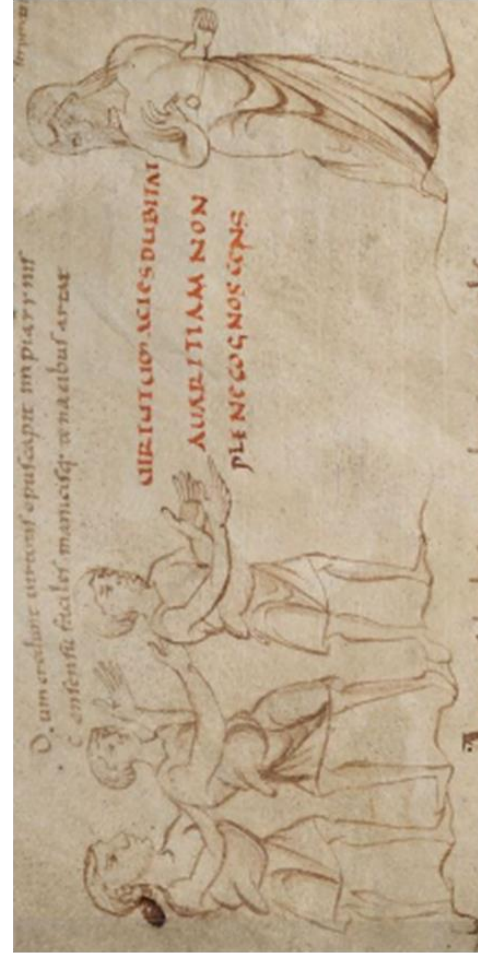 Dum credunt uirtutis opus capit
Consensu faciles manicisq; tenacibus artat
UIRTUTUM ACIES DUBITAT
AUARITIAM NON
PLENE COGNOSCENS